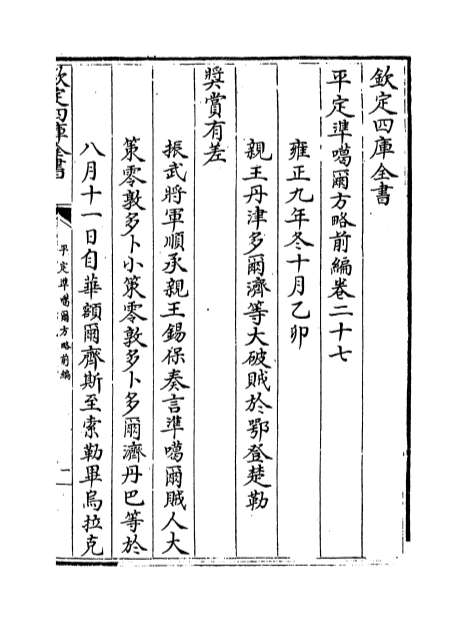 欽定四庫全書
平定準噶爾方略前編卷二十七
雍正九年冬十月乙卯
親王丹津多爾濟等大破賊於鄂登楚勒
獎賞有差
振武將軍順承親王錫保奏言準噶爾賊人大
策零敦多卜小策零敦多卜多爾濟丹巴等於
八月十一日自華額爾齊斯至索勒畢烏拉克
欽定四庫全書
平定準噶爾方略前編
一